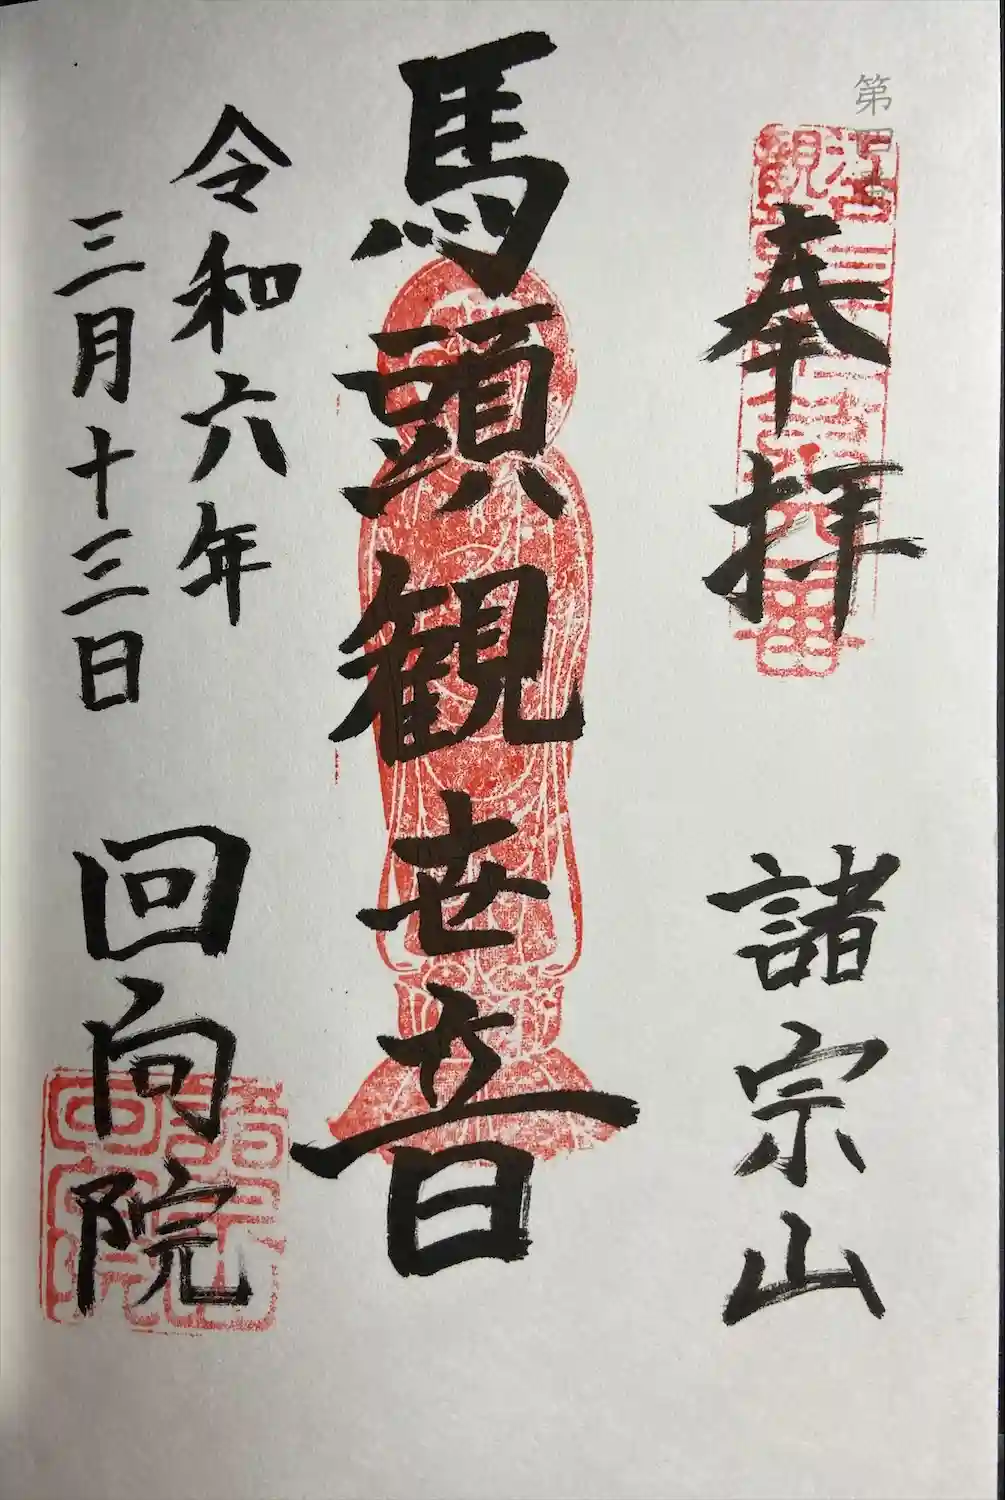 第四番
奉拝
諸宗山
馬頭観世音
令和六年
三月十三日
回向院